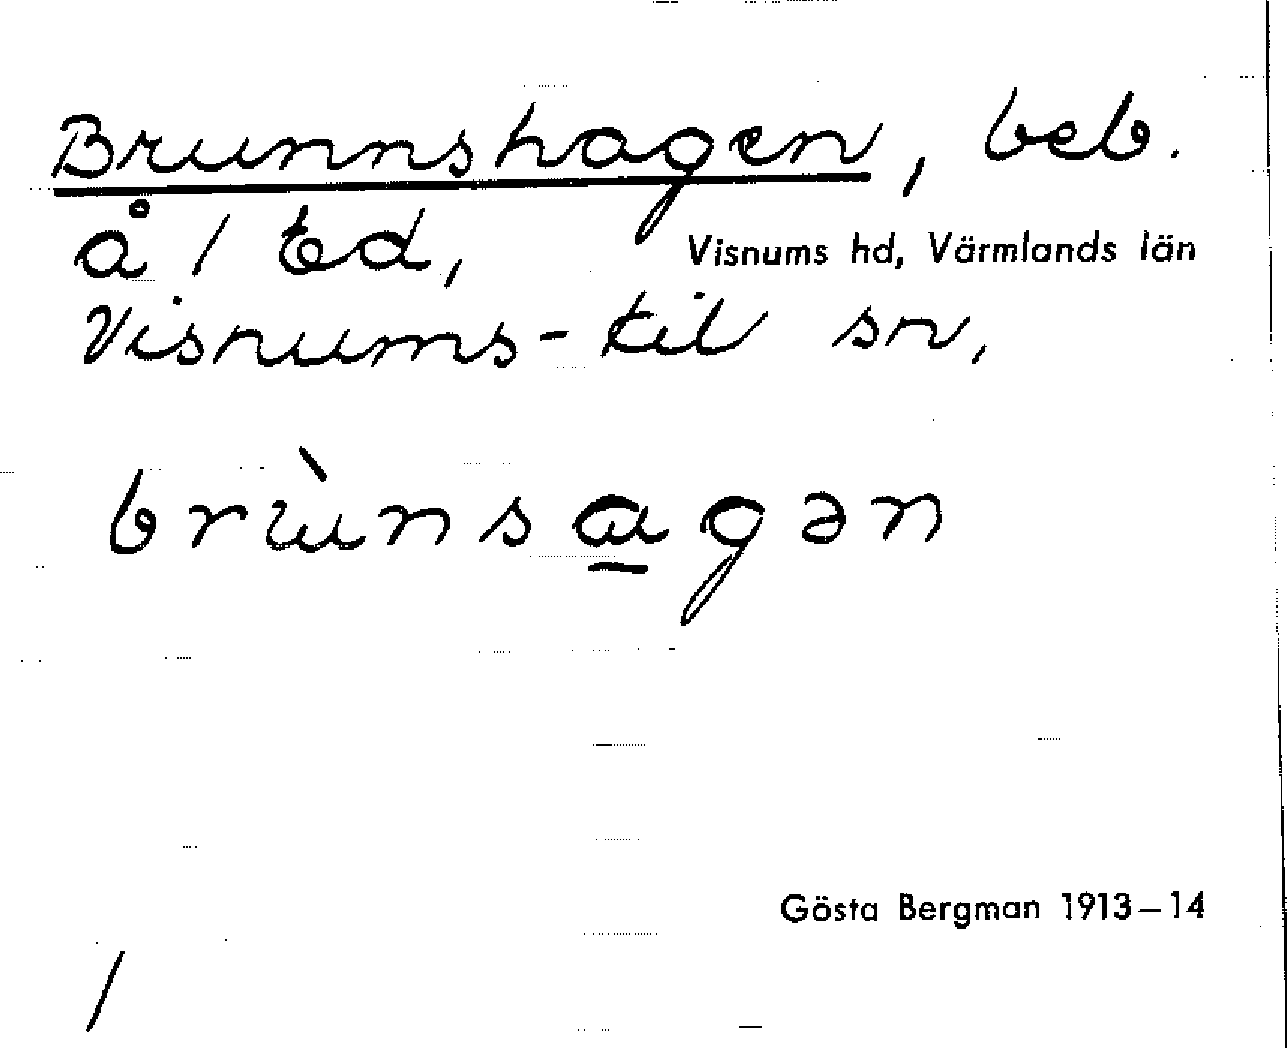 Brunnshagen, beb.
å / Ed, Visnums hd, Värmlands län
Visnums-kil sn,
brùnsa̲gən
Gösta Bergman 1913–14
/